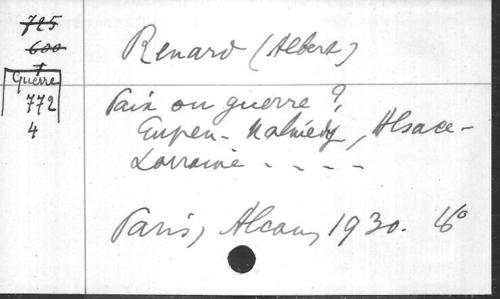 725
600
+
Guerre
772
4
Renard (Albert)
Paix ou guerre ?,
Eupen-Malmédy, Alsace-
Lorraine - - - -
Paris, Alcan, 1930. 8°